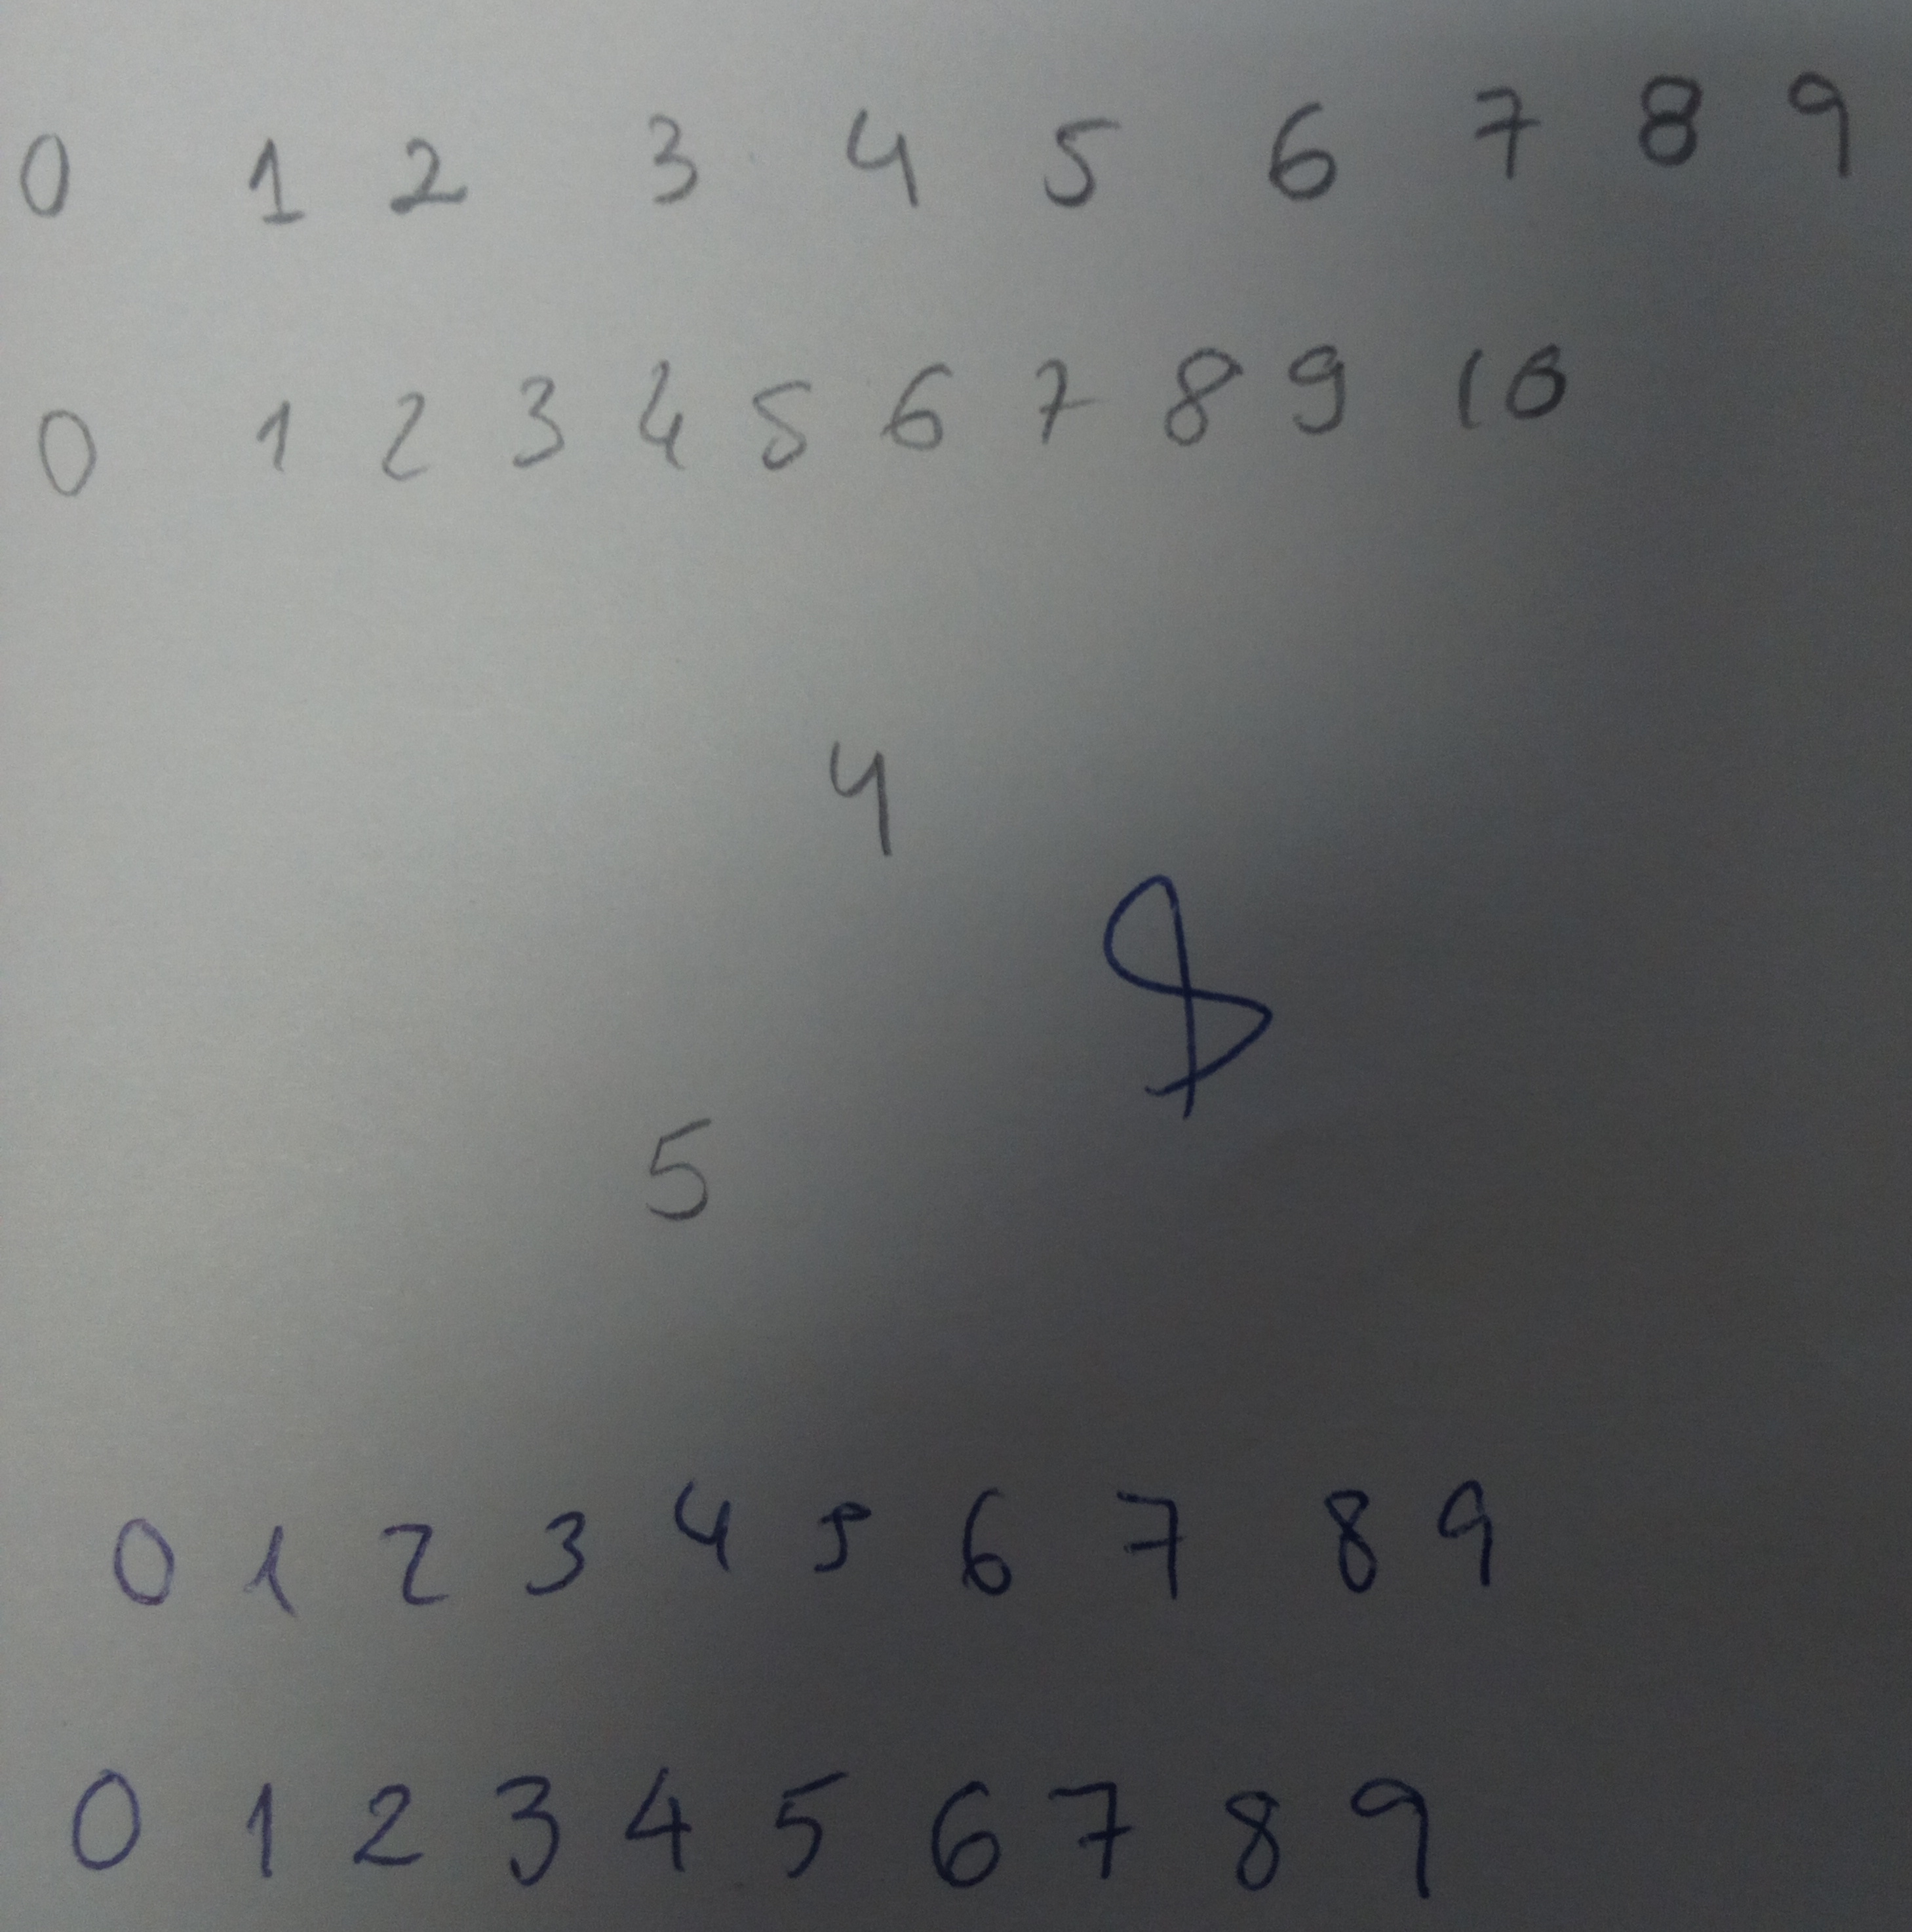 0 1 2 3 4 5 6 7 8 9
0 1 2 3 4 5 6 7 8 9 10
4
5
0 1 2 3 4 5 6 7 8 9
0 1 2 3 4 5 6 7 8 9